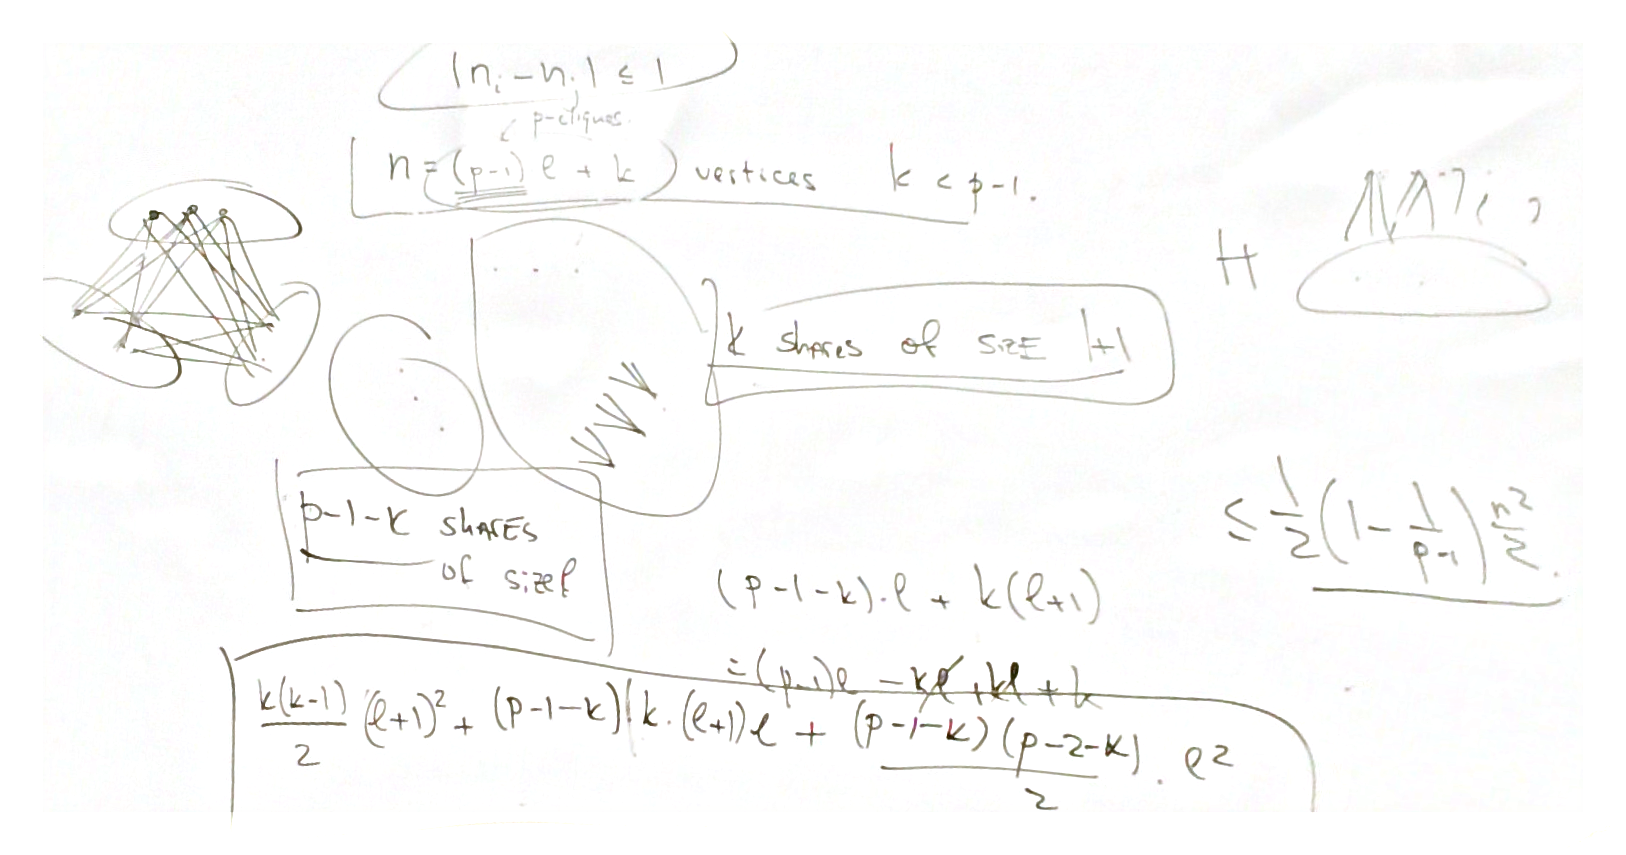 |n_i - n_j| ≤ 1
p-cliques.
n = (p-1) l + k vertices k < p-1.
H
k shares of size l+1
p-1-k shares
of size l
≤ 1/2 (1 - 1/(p-1)) n²/2.
(p-1-k)·l + k(l+1)
= (p-1)l - kl + kl + k
k(k-1)/2 (l+1)² + (p-1-k) k·(l+1)l + (p-1-k)(p-2-k)/2 · l²